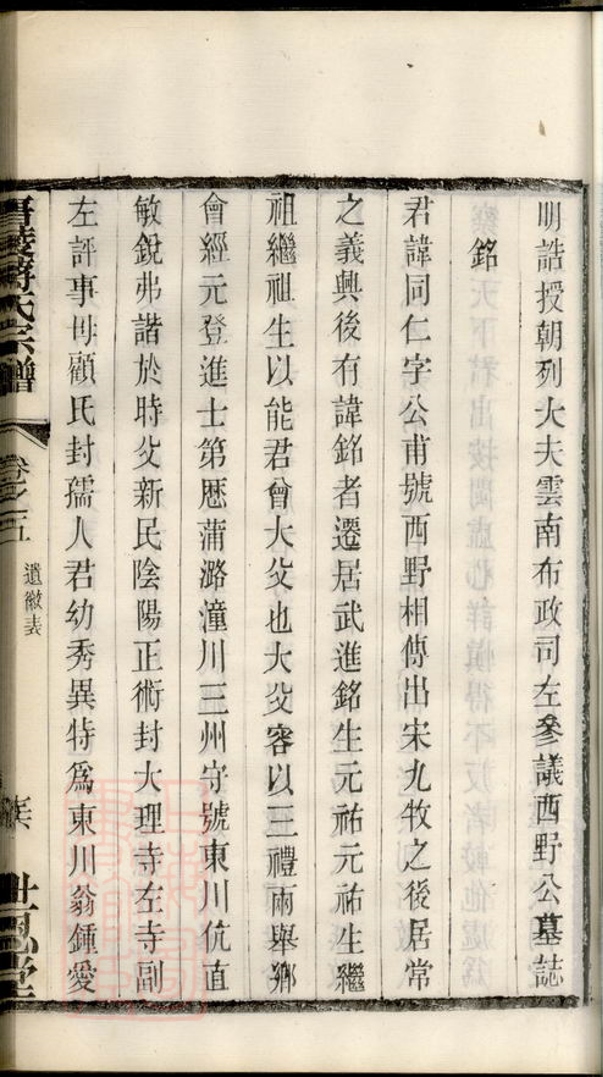 明誥授朝列大夫雲南布政司左參議西野公墓誌
銘
君諱同仁字公甫號西野相傳出宋九牧之後居常
之義興後有諱銘者遷居武進銘生元祐元祐生繼
祖繼祖生以能君曾大父也大父容以三禮兩舉鄉
會經元登進士第歷蒲潞潼川三州守號東川伉直
敏銳弗諧於時父新民陰陽正術封大理寺左寺副
左評事母顧氏封孺人君幼秀異特爲東川翁鍾愛
氏宗譜
卷之五
遺徽表
世恩堂